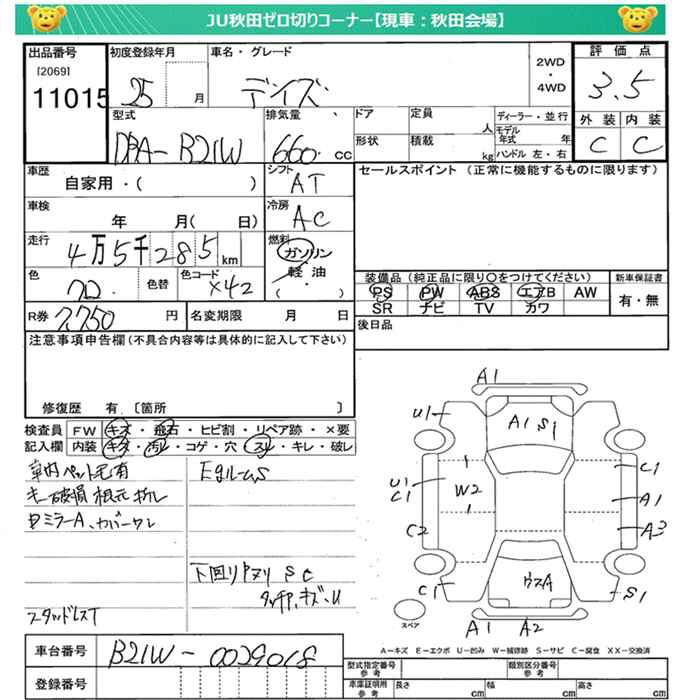 JU秋田ゼロ切りコーナー【現車：秋田会場】
出品番号
[2069]
11015
初度登録年月
25 月
車名・グレード
デイズ
2WD
・
4WD
評価点
3.5
外装 内装
C C
型式
DBA-B21W
排気量
660 cc
ドア
形状
定員 人
積載 kg
ディーラー・並行
モデル年式 年
ハンドル 左・右
車歴
自家用・( )
シフト
AT
セールスポイント (正常に機能するものに限ります)
車検
年 月( 日)
冷房
AC
走行
4万5千285km
燃料
ガソリン
軽油
( )
色
色替
色コード
X42
装備品 (純正品に限り○をつけてください)
PS PW ABS エアB AW
SR ナビ TV カワ
新車保証書
有・無
R券 7,750 円
名変期限 月 日
後日品
注意事項申告欄 (不具合内容等は具体的に記入して下さい)
修復歴 有 〔箇所 〕
検査員記入欄
FW キズ・飛石・ヒビ割・リペア跡・×要
内装 キズ・汚レ・コゲ・穴・スレ・キレ・破レ
車内ペット毛有
キー破損 根元
ミラーA、カバーワレ
スタッドレスT
下回り S C
キズ・U
A1
U1
A1 S1
C1
U1
C1
W2
A1
A3
C2
C1
S1
A1 A2
スペア
A－キズ E－エクボ U－凹み W－補修跡 S－サビ C－腐食 XX－交換済
車台番号
B21W-0029018
登録番号
型式指定番号
参考
類別区分番号
参考
車庫証明用
参考
長さ cm
幅 cm
高さ cm